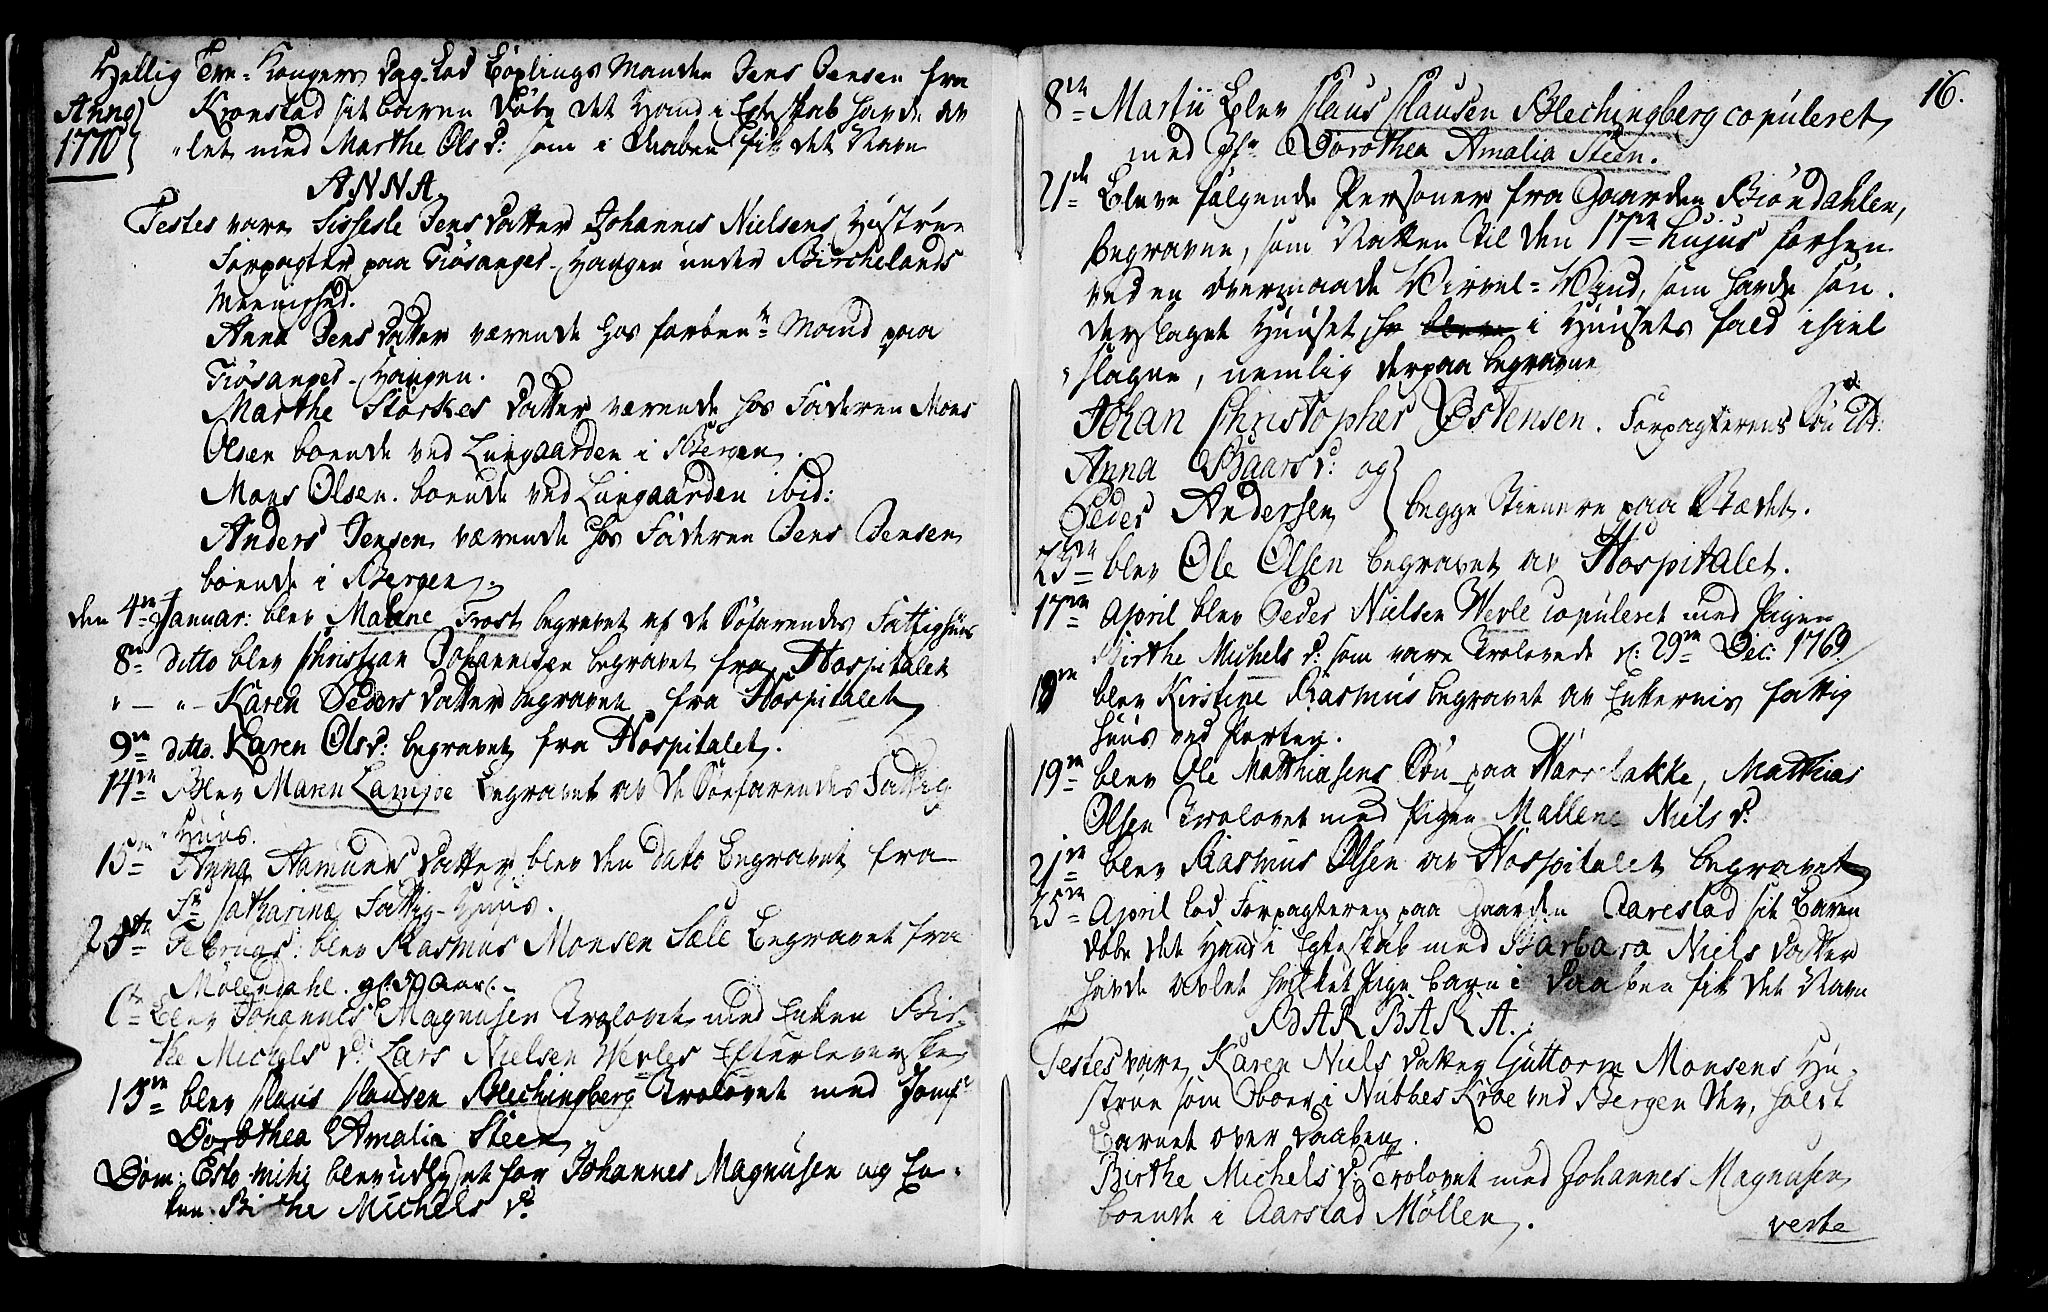 Hellig Tre-Kongers Dag lod Böplings Manden Jens Jensen fra
Anno 1770
Kronstad sit baren döbe det Hand i Egteskab havde av
let med Marthe Ols d: som i Daaben fik det Navn
ANNA
Testes vare Sissele Jens datter Johannes Nielsens Hüstrüe
Forpagter paa Fiösanger-Haugen under Birchelands
Meenighed.
Anna Jens datter værende hos forben:te Mand paa
Fiösanger-Haugen.
Marthe Störkes datter værende hos Faderen Mons
Olsen boende ved Lungaarden i Bergen.
Mons Olsen. boende ved Lungaarden ibid:
Anders Jensen værende hos Faderen Jens Jensen
boende i Bergen.
den 4de Januar: blev Malene Frost begravet af de Söfarendes Fattighüus
8de ditto blev Christian Johannesen begravet fra Hospitalet
" — " — Karen Peders datter begravet fra Hospitalet
9de ditto. Karen Ols d: begravet fra Hospitalet.
14de Blev Maren Lamjoe begravet av de Söefarendes Fattig
Huus.
15de Anna Aamunds datter blev den dato begravet fra
St Catharinæ Fattig-Huus.
Februar: blev Rasmus Monsen Sæle Begravet fra
Möllendahl. gl: 59 Aar.
6te Blev Johannes Magnusen Trolovet med Enken Bir-
the Michels d: Lars Nielsen Wevles Efterleverske
15de blev Claus Clausen Blechingberg Trolovet med Jomfr
Dorothea Amalia Steen
Dom: Esto mihi blev udlyset for Johannes Magnusen og En-
ken Birthe Michels d:
16.
8de Martii Blev Claus Clausen Blechingberg copuleret
med Jfr Dorothea Amalia Steen.
21de Bleve følgende Personer fra Gaarden Biöndahlen,
begravne, som Natten til den 17de hujus forhen
ved en overmaade Virvel-Vind, som havde sön-
derslaget Huuset, i Huusets fald ihiel
slagne, nemlig derpaa begravne
Johan Christopher Østensen. Forpagterens Sön
Anna Baars d: og
Peder Andersen } begge tienere paa Stædet.
23de blev Ole Olsen begravet av Hospitalet.
17de April blev Peder Nielsen Wevle copuleret med Pigen
Birthe Michels d: som vare Trolovede d: 29de Dec: 1769.
18de blev Kirstine Rasmus begravet av Enkernis fattig
Huus ved Porten.
19de blev Ole Matthiasens Sön paa Haasebakke, Matthias
Olsen Trolovet med Pigen Mallene Niels d:
21de blev Rasmus Olsen av Hospitalet begravet
25de April lod Forpagteren paa Gaarden Aarestad sit Baren
döbe det Hand i Egteskab med Barbara Niels datter
havde avlet hvilket Pige baren i Daaben fik det Navn
BARBARA.
Testes vare Karen Niels datter Guttorm Monsens Hu-
strue som boer i Nubbes Kroe ved Bergen der, holdt
Barnet over daaben.
Birthe Michels d: Trolovet med Johannes Magnusen
boende i Aarstad Möllen.
verte